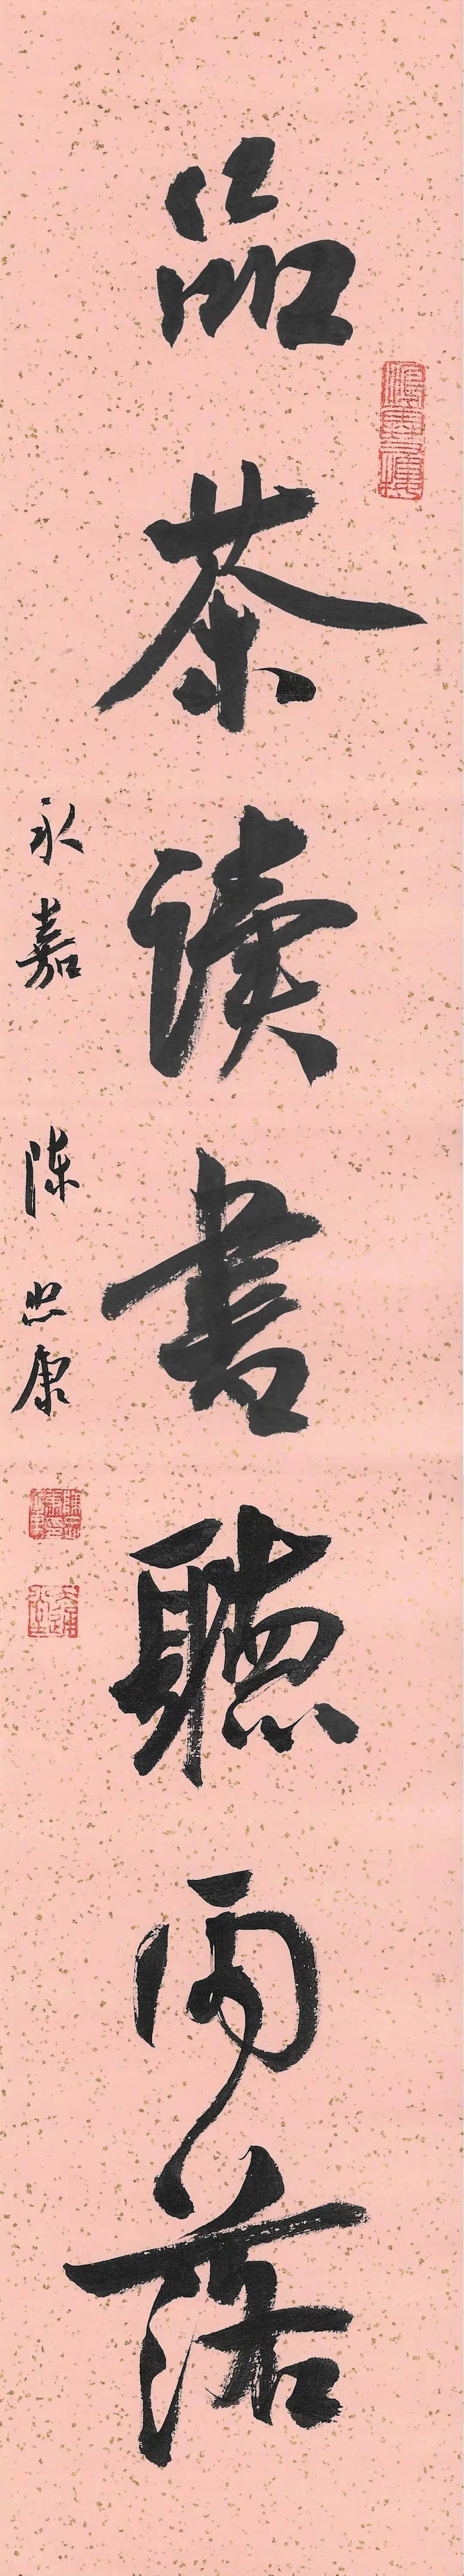 品茶读書聽雨落
永嘉陈忠康